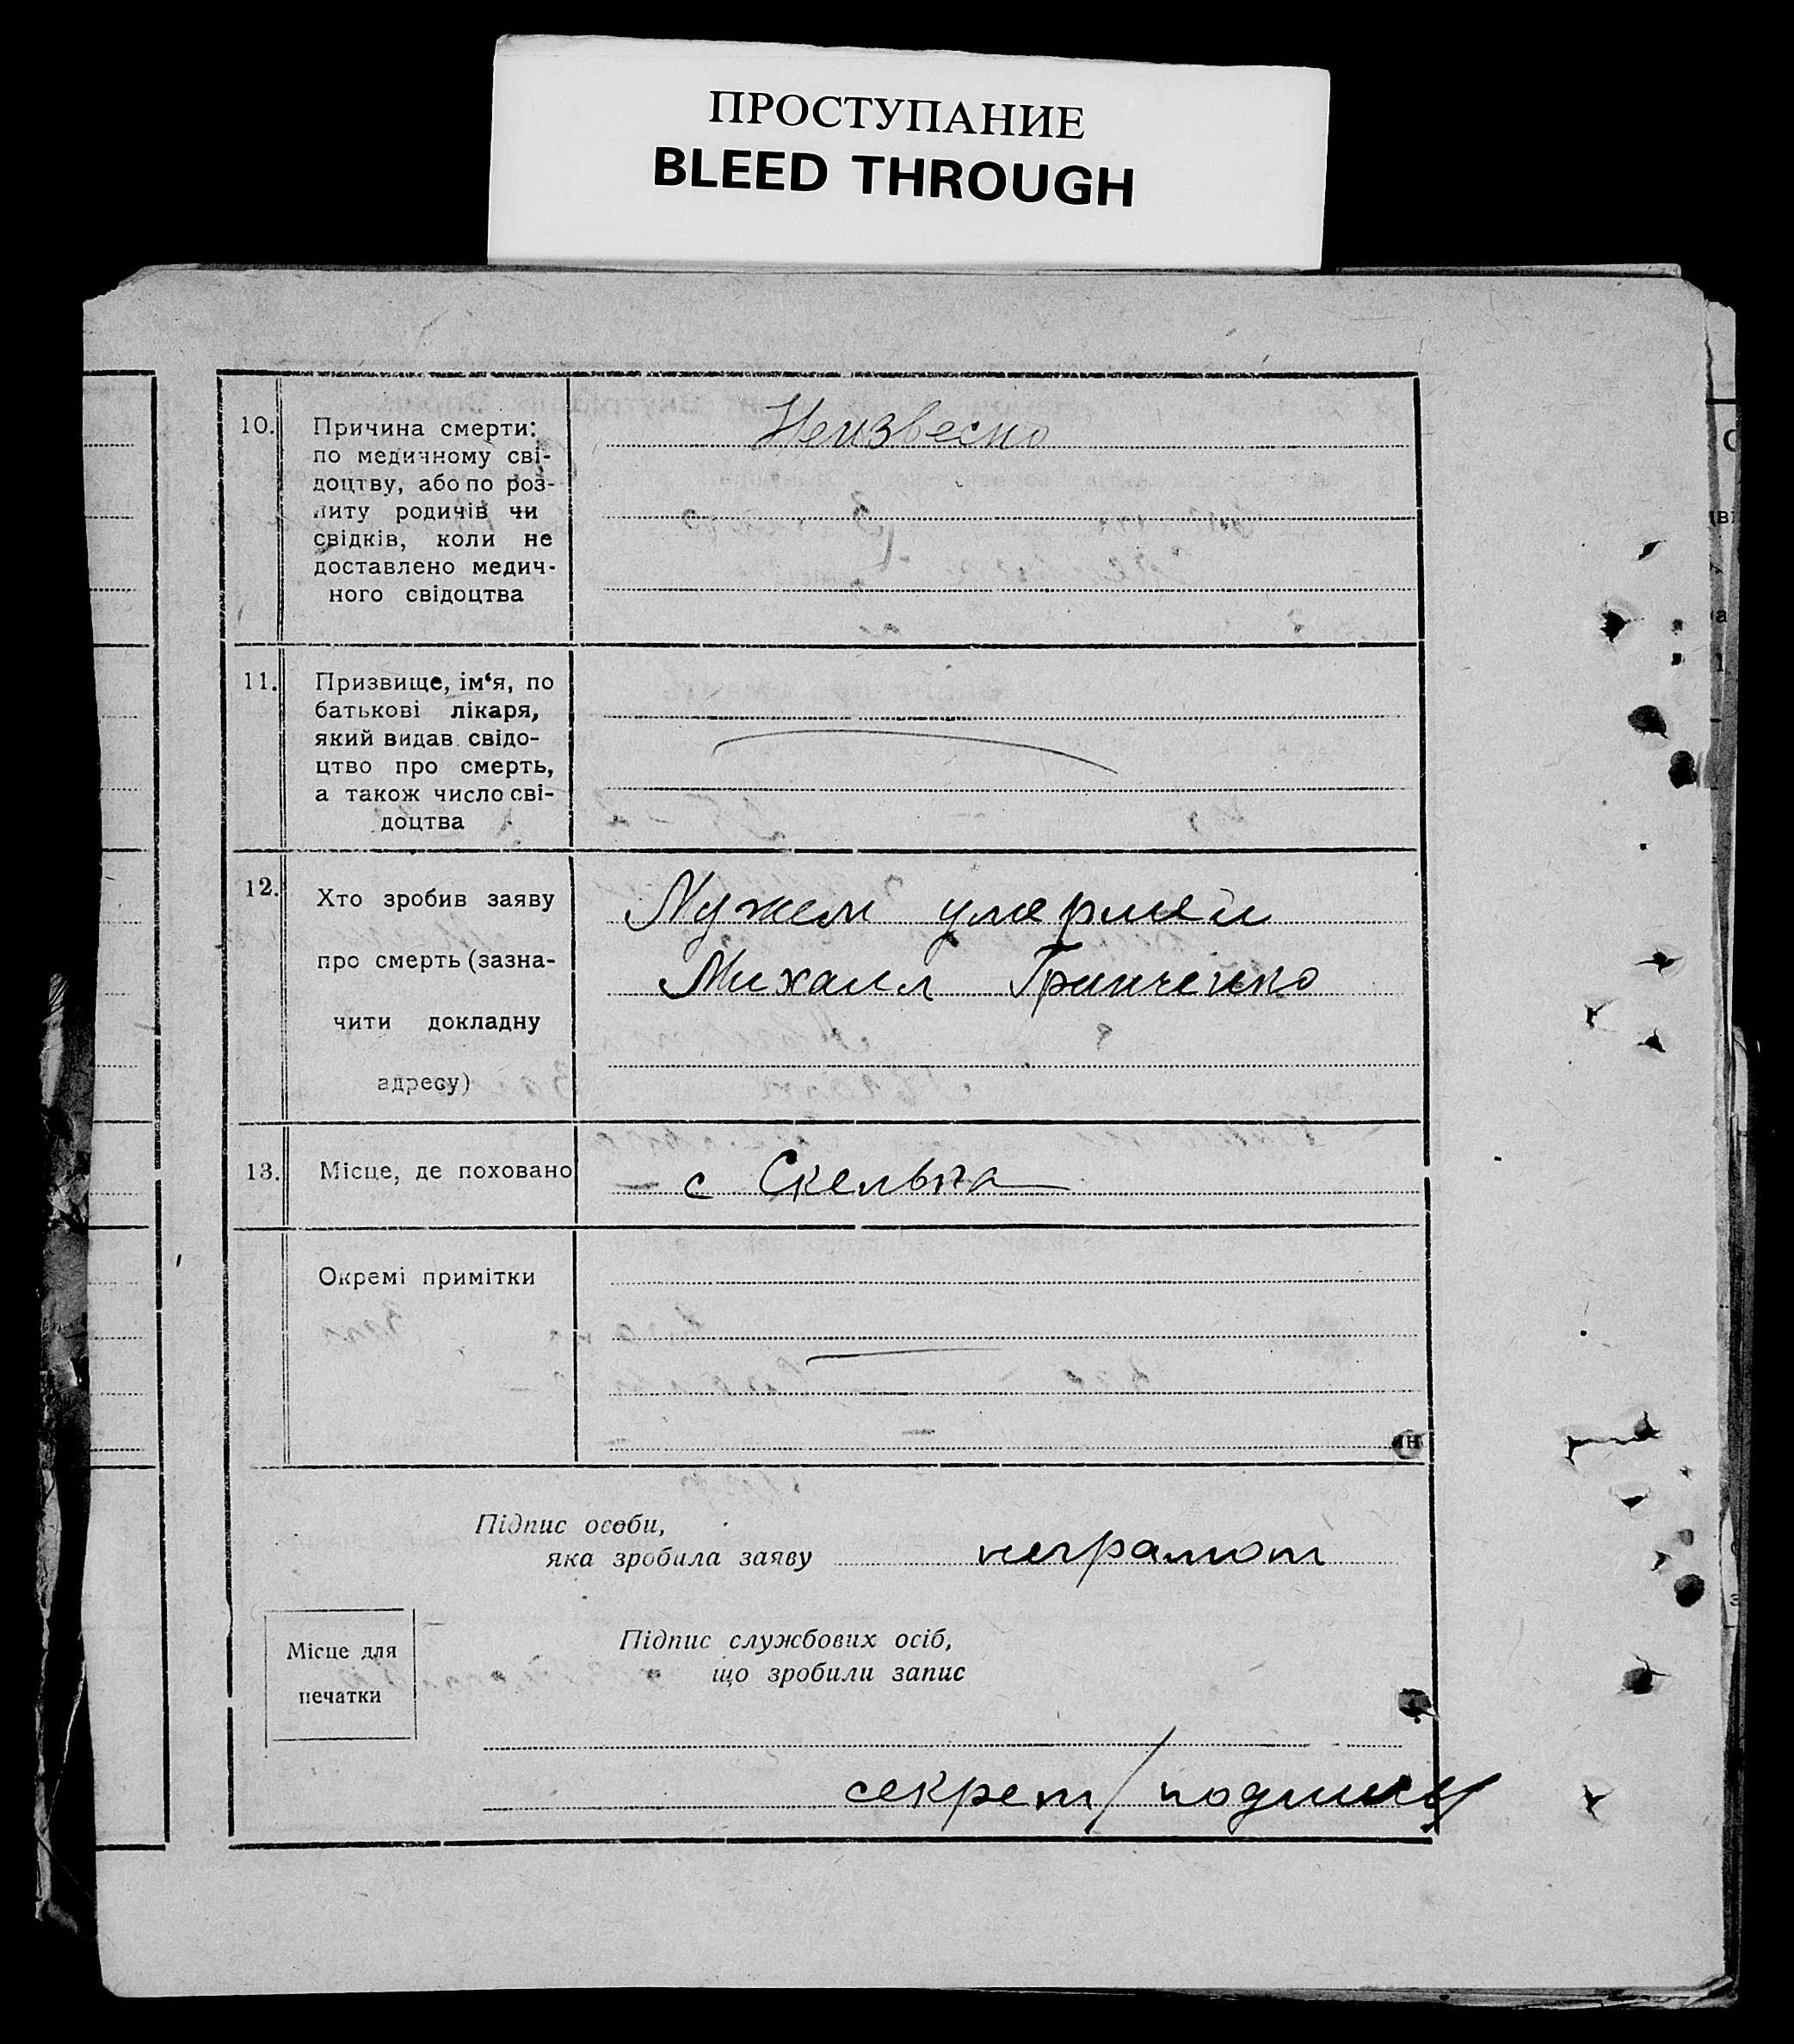 ПРОСТУПАНИЕ
BLEED THROUGH
10.
Причина смерти:
по медичному сві-
доцтву, або по роз-
питу родичів чи
свідків, коли не
доставлено медич-
ного свідоцтва
Неизвесно
11.
Призвище, ім‘я, по
батькові лікаря,
який видав свідо-
цтво про смерть,
а також число сві-
доцтва
12.
Хто зробив заяву
про смерть (зазна-
чити докладну
адресу)
Мужем умершей
Михаил Гринченко
13.
Місце, де поховано
с Скелька
Окремі примітки
Підпис особи,
яка зробила заяву
неграмот
Місце для
печатки
Підпис службових осіб,
що зробили запис
секрет/подпись